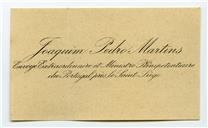 Joaquim Pedro Martins
Envoyé Extraordinaire et Ministre Plénipotentiaire
du Portugal près le Saint-Siège